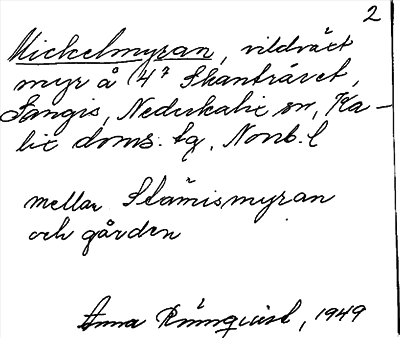 2
Mickelmyran, vildväxt
myr å
Sangis, Nederkalix sn, Ka-
lix doms. tg, Norrb. l
mellan Stämismyran
och gården
Anna Rönnqvist, 1949